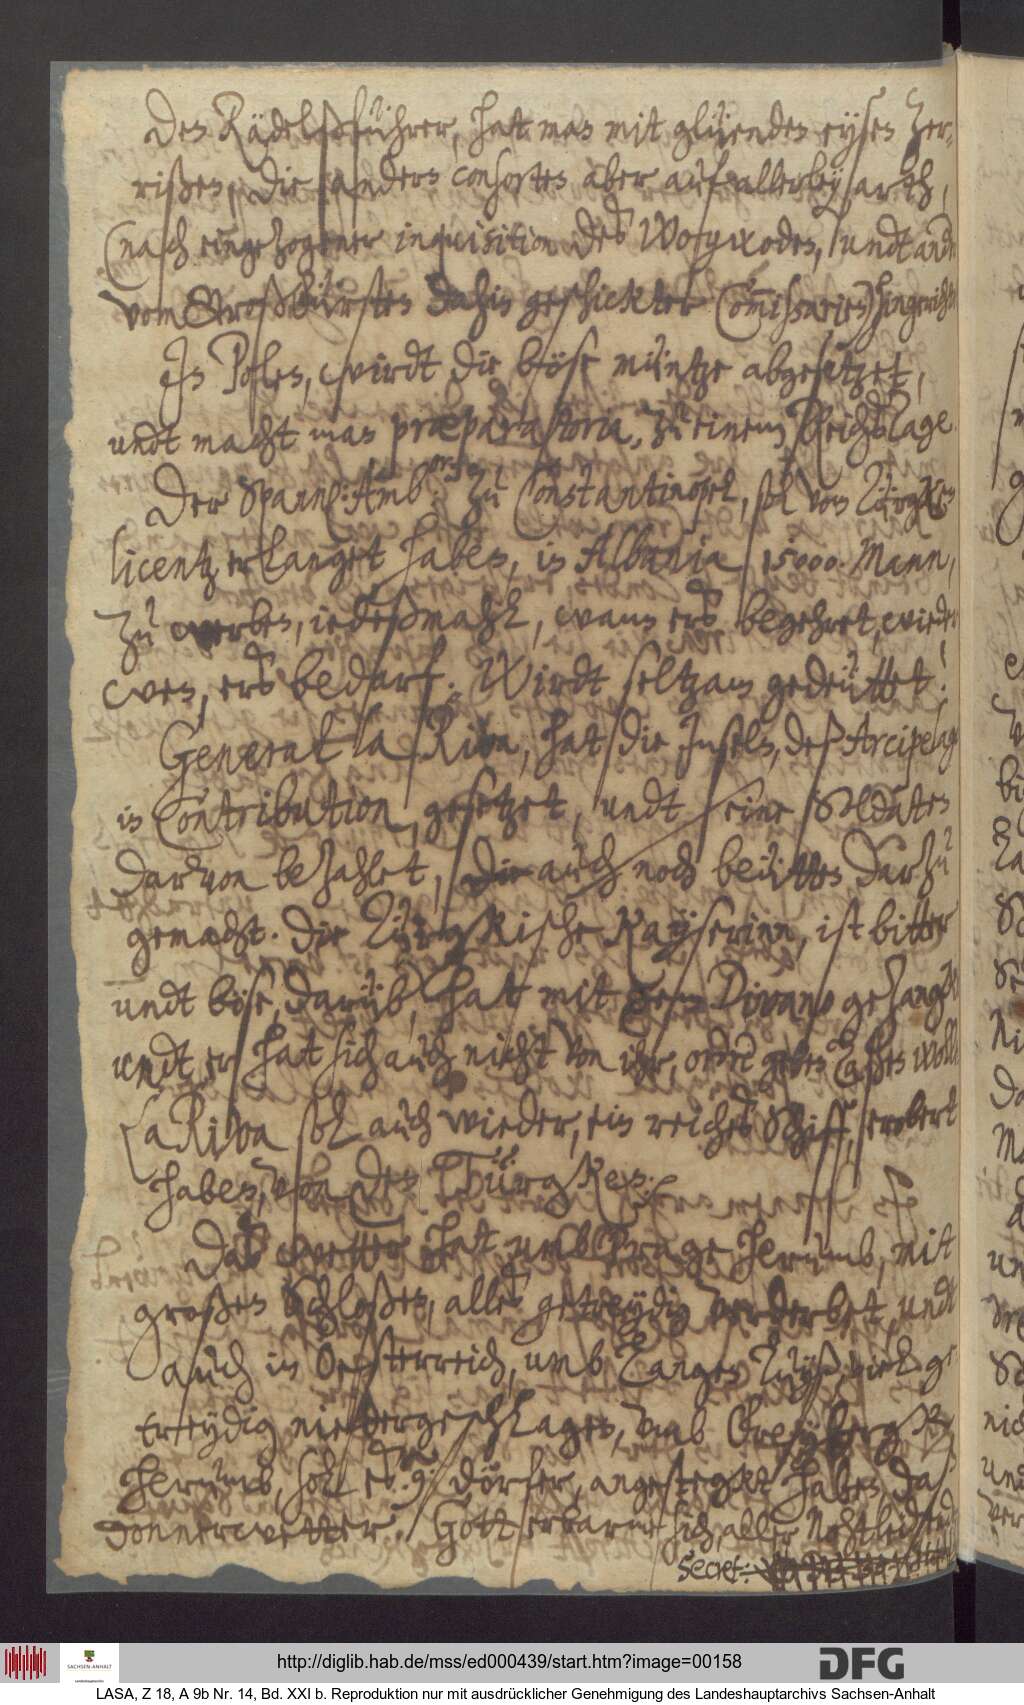 den Rädelsführer, hat man mit glüenden eysen zer-
rißen, die andern consorten aber auf allerley arth,
(nach eingezogener inquisition des Woywoden, undt andr
vom Großfürsten dahin geschickter Commissarien) hingericht
In Polen, wirdt die böse müntze abgesetzet,
undt macht man præparatoria, zu einem Reichstage.
Der Spannl: Amb:or zu Constantinopel, sol von Türgken
licentz erlanget haben, in Albania 15000. Mann,
zu werben, iedeßmahl, wann ers begehret, wieder
wen, ers bedarf. Wirdt seltzam gedeüttet.
General la Riva, hat die Inseln, deß Arcipelag
in Contribution, gesetzet, undt seine Soldaten
darvon bezahlet, die auch noch beütten darzu
gemacht. Die Türgkische Kayserinn, ist bitter
undt böse, darüb, hat mit dem Divano gezangkt
undt er hat sich auch nicht von ihr, ordre geben laßen woll
La Riva sol auch wieder, ein reiches Schiff, erobert
haben, von den Türgken.
Das wetter hat umb Prage herumb, mit
großen Schloßen, alles getreydig verderbet, undt
auch in Oesterreich, umb Langen Luyß viel ge-
treydig niedergeschlagen, umb
herumb, soll es 9. dörfer, angestegkt haben, das
donnerwetter. Gott erbarme sich, aller Nohtleidend
Secret:
http://diglib.hab.de/mss/ed000439/start.htm?image=00158
DFG
SACHSEN-ANHALT
LASA, Z 18, A 9b Nr. 14, Bd. XXI b. Reproduktion nur mit ausdrücklicher Genehmigung des Landeshauptarchivs Sachsen-Anhalt